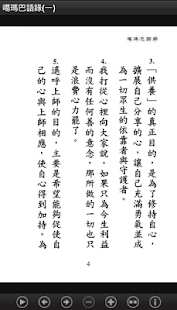 噶瑪巴語錄(一)
噶瑪巴語錄
3.「供養」的真正目的，是為了修持自心，
擴展自己分享的心，讓自己充滿勇氣並成
為一切眾生的依靠者與守護者。
4.我打從心裡向大家說，如果只為今生利益
而沒有任何善的意念，那所做的一切也只
是浪費心力罷了。
5.遙呼上師的目的，主要是希望能夠促使自
己的心與上師相應，使自心得到加持。為
4